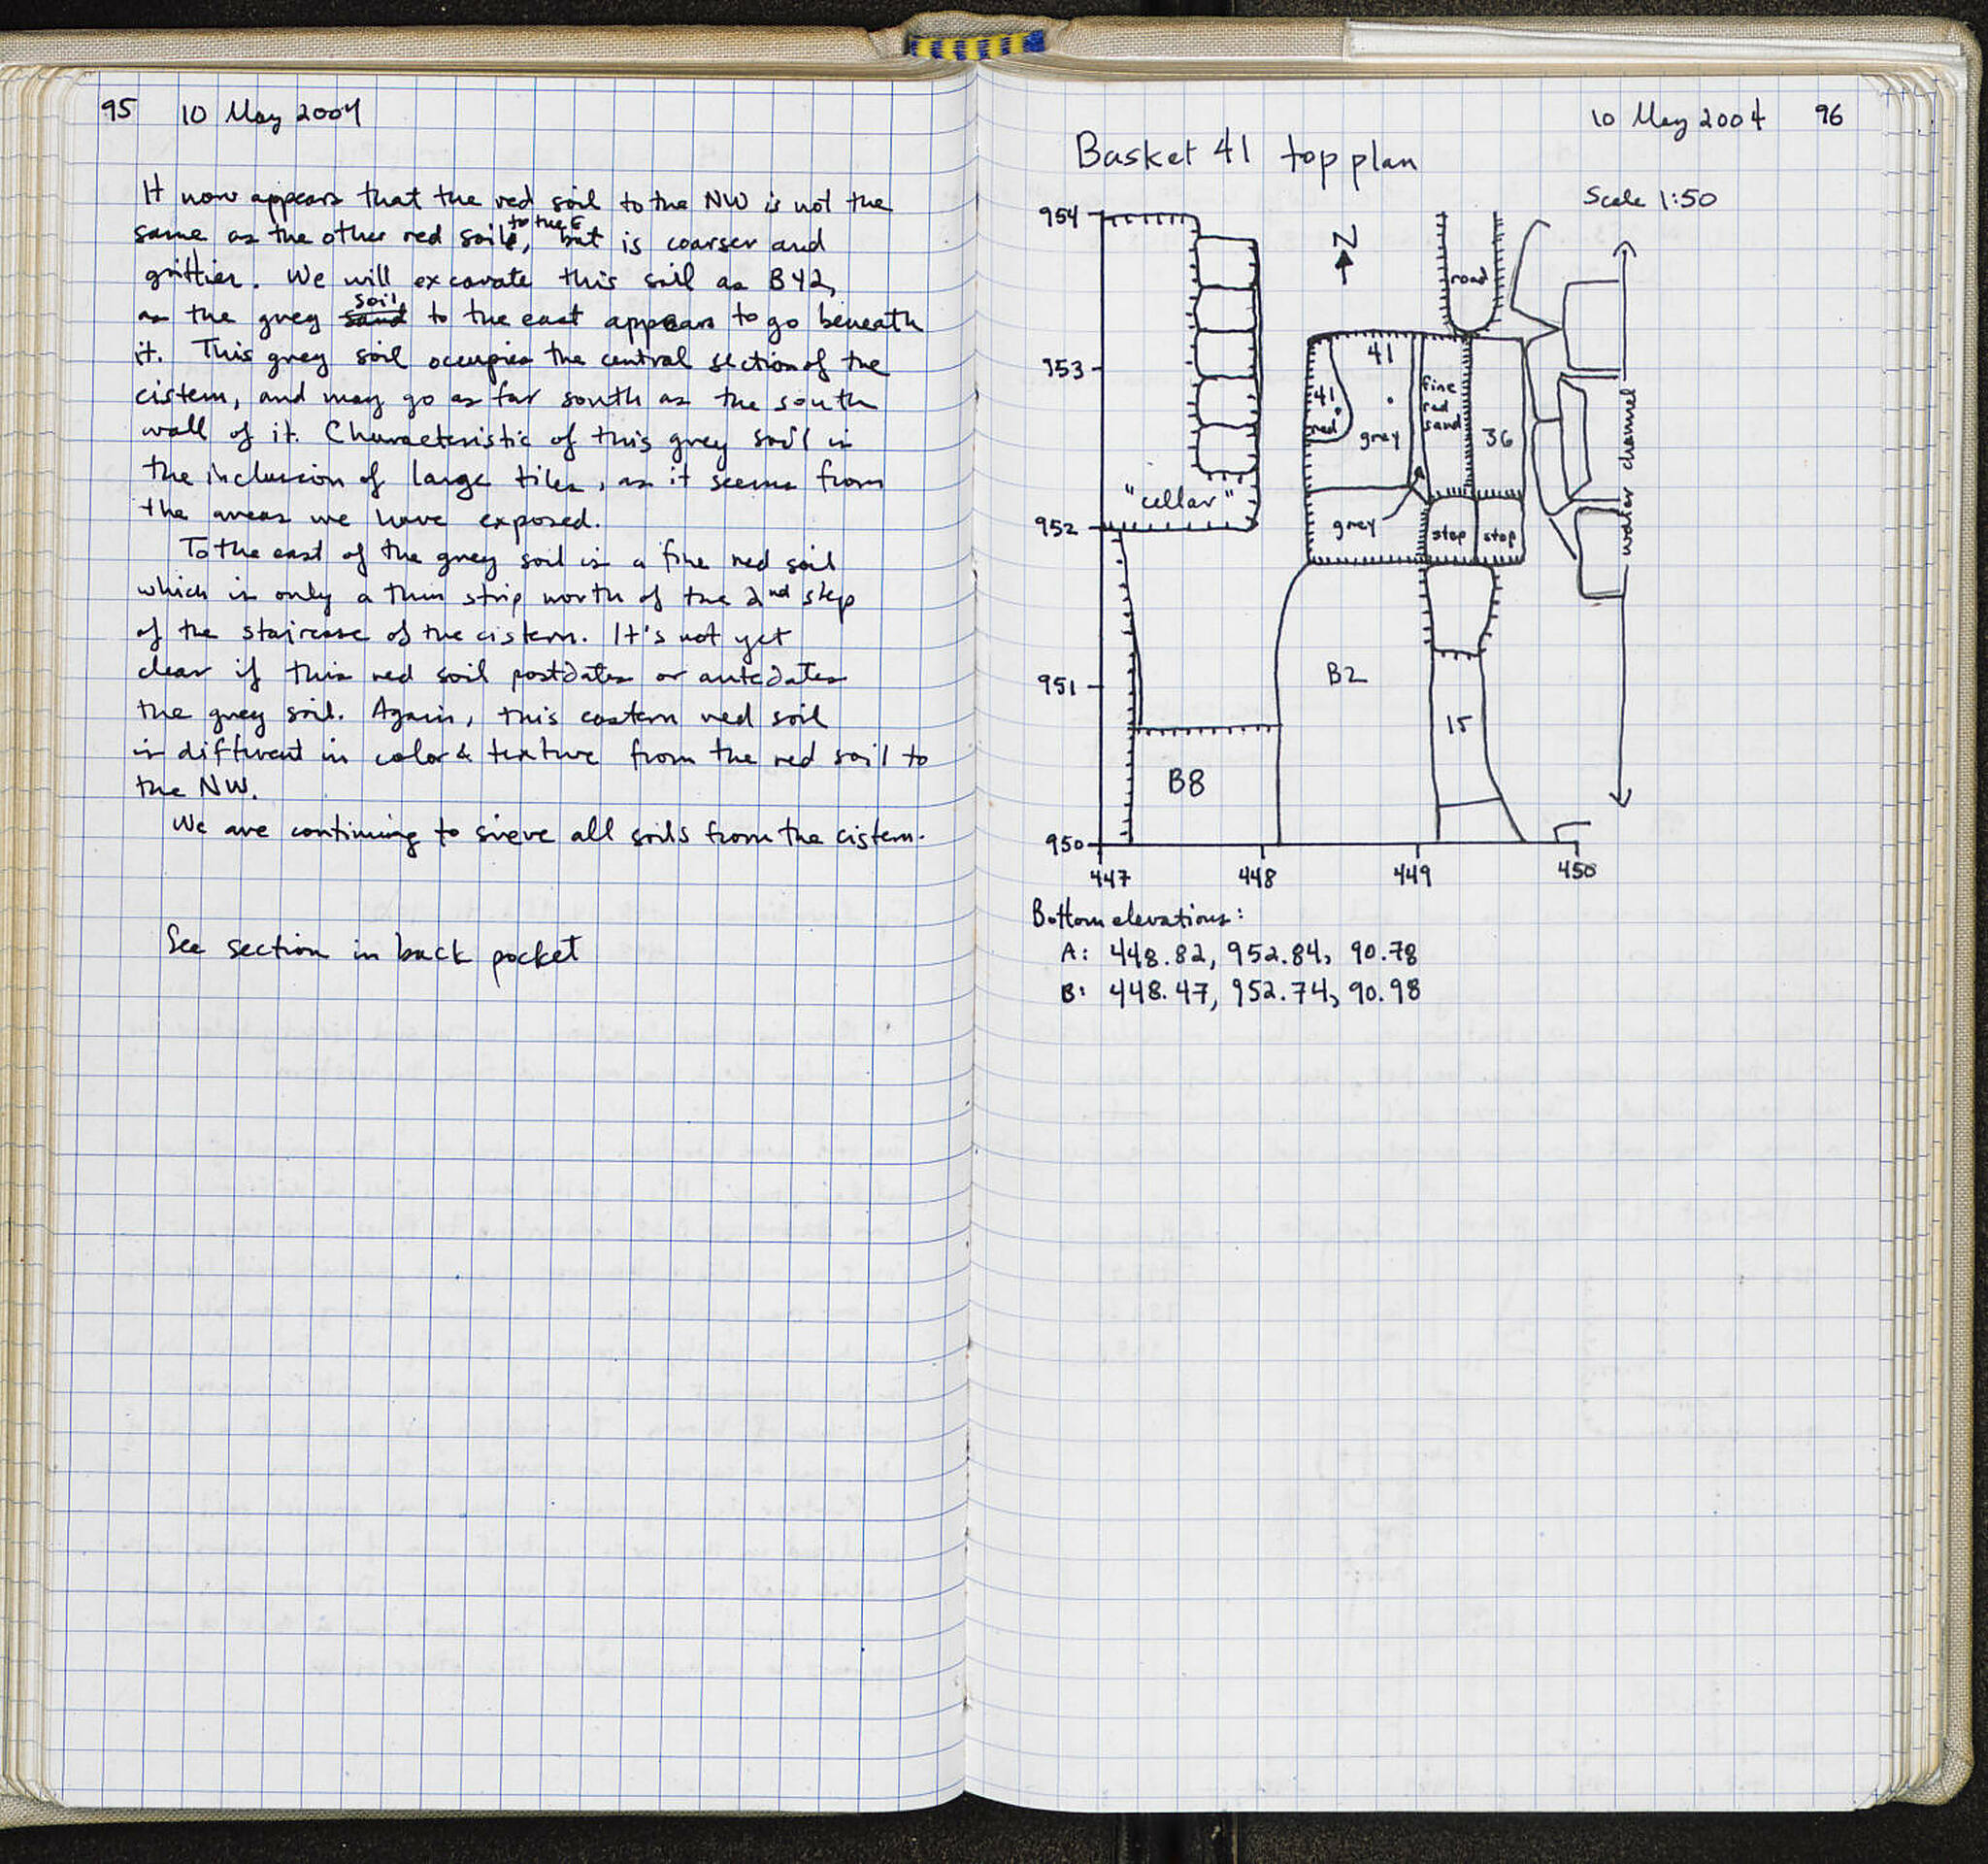 95 10 May 2004
It now appears that the red soil to the NW is not the
same as the other red soil to the E, but is coarser and
grittier. We will excavate this soil as B42,
as the grey sand soil to the east appears to go beneath
it. This grey soil occupies the central section of the
cistern, and may go as far south as the south
wall of it. Characteristic of this grey soil is
the inclusion of large tiles, as it seems from
the areas we have exposed.
To the east of the grey soil is a fine red soil
which is only a thin strip north of the 2nd step
of the staircase of the cistern. It's not yet
clear if this red soil postdates or antedates
the grey soil. Again, this eastern red soil
is different in color & texture from the red soil to
the NW.
We are continuing to sieve all soils from the cistern.
See section in back pocket
10 May 2004 96
Basket 41 top plan
Scale 1:50
954
N
road
953
41
41
red
grey
fine
red
sand
36
water channel
"cellar"
952
grey
step
step
951
B2
15
B8
950
447 448 449 450
Bottom elevations:
A: 448.82, 952.84, 90.78
B: 448.47, 952.74, 90.98